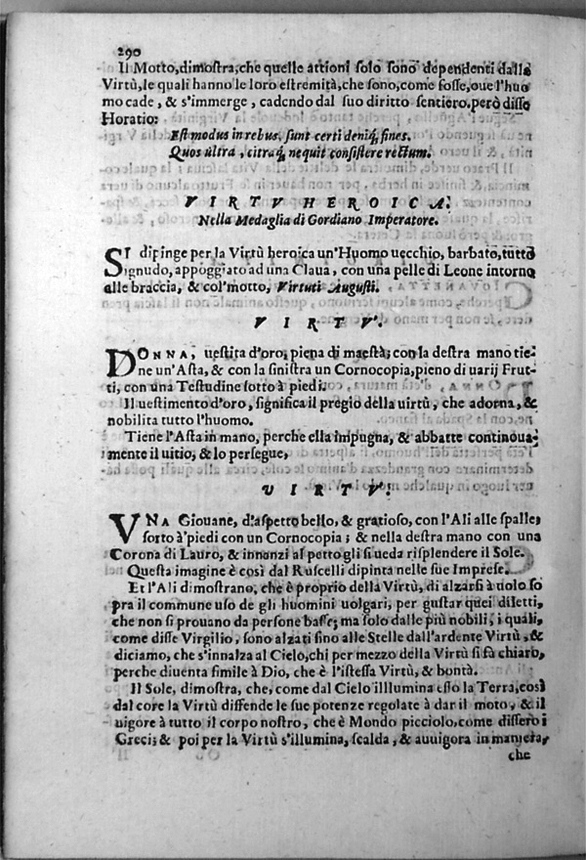 290
Il Motto, dimostra, che quelle attioni solo sono dependenti dalla
Virtù, le quali hanno le loro estremità, che sono, come fosse, oue l'huo
mo cade, & s'immerge, cadendo dal suo diritto sentiero, però disse
Horatio:
Est modus in rebus, sunt certi deniq́, fines.
Quos ultra, citraq́, nequit consistere rectum.
VIRTV HEROICA.
Nella Medaglia di Gordiano Imperatore.
SI dipinge per la Virtù heroica un'Huomo uecchio, barbato, tutto
ignudo, appoggiato ad una Claua, con una pelle di Leone intorno
alle braccia, & col'motto, Virtuti Augusti.
VIRTV'.
DONNA, uestita d'oro, piena di maestà; con la destra mano tie-
ne un'Asta, & con la sinistra un Cornocopia, pieno di uarij Frut-
ti, con una Testudine sotto à piedi.
Il uestimento d'oro, significa il pregio della uirtù, che adorna, &
nobilita tutto l'huomo.
Tiene l'Asta in mano, perche ella impugna, & abbatte continoua-
mente il uitio, & lo persegue,
VIRTV'.
VNA Giouane, d'aspetto bello, & gratioso, con l'Ali alle spalle,
sotto à'piedi con un Cornocopia; & nella destra mano con una
Corona di Lauro, & innanzi al petto gli si ueda risplendere il Sole.
Questa imagine è così dal Ruscelli dipinta nelle sue Imprese.
Et l'Ali dimostrano, che è proprio della Virtù, di alzarsi à uolo so
pra il commune uso de gli huomini uolgari, per gustar quei diletti,
che non si prouano da persone basse; ma solo dalle più nobili, i quali,
come disse Virgilio, sono alzati sino alle Stelle dall'ardente Virtù, &
diciamo, che s'innalza al Cielo, chi per mezzo della Virtù si fà chiaro,
perche diuenta simile à Dio, che è l'istessa Virtù, & bontà.
Il Sole, dimostra, che, come dal Cielo illlumina esso la Terra, così
dal core la Virtù diffende le sue potenze regolate à dar il moto, & il
uigore à tutto il corpo nostro, che è Mondo picciolo, come dissero i
Greci; & poi per la Virtù s'illumina, scalda, & auuigora in maniera,
che